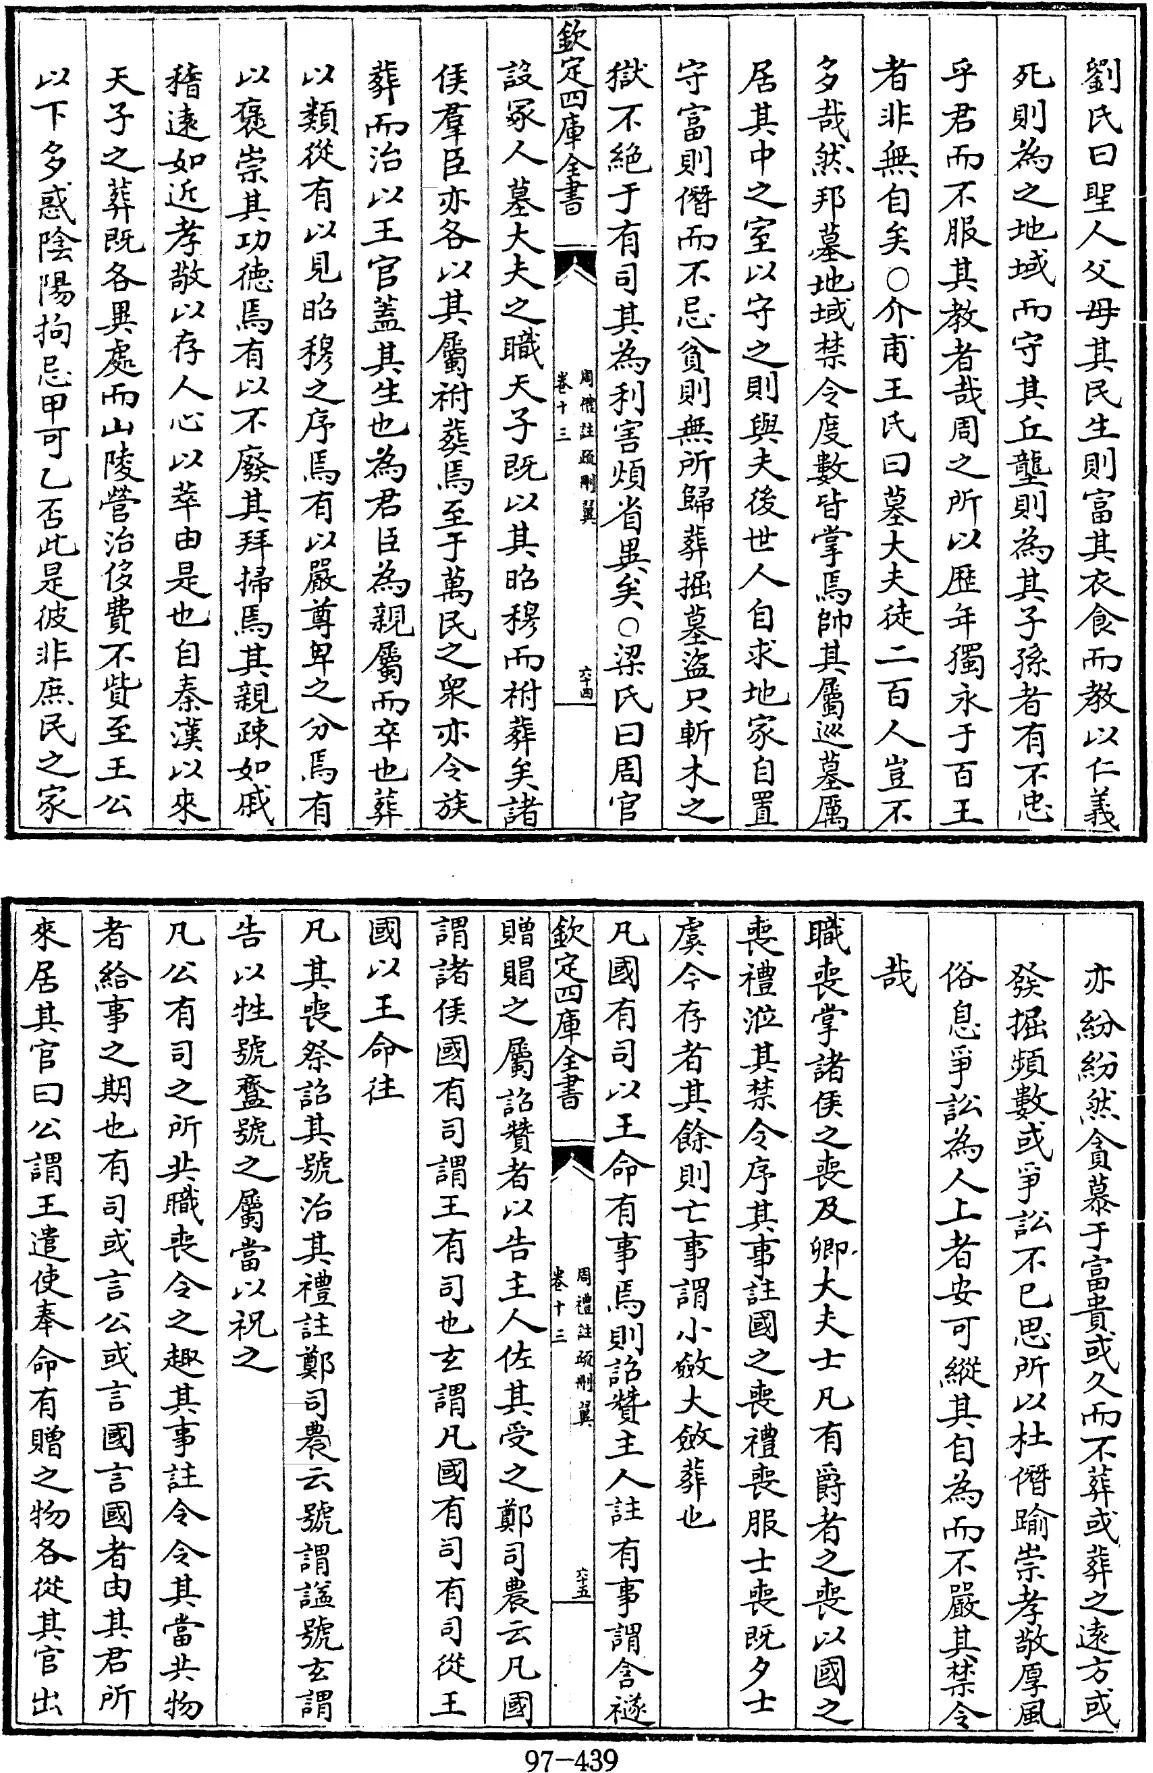 劉氏曰聖人父母其民生則富其衣食而教以仁義
死則為之地域而守其丘壟則為其子孫者有不忠
乎君而不服其教者哉周之所以歷年獨永于百王
者非無自矣○介甫王氏曰墓大夫徒二百人豈不
多哉然邦墓地域禁令度數皆掌焉帥其屬巡墓厲
居其中之室以守之則與夫後世人自求地家自置
守富則僭而不忌貧則無所歸葬掘墓盜只斬木之
獄不絕于有司其為利害煩省異矣○梁氏曰周官
欽定四庫全書
周禮註疏刪翼
卷十三
六十四
設冢人墓大夫之職天子既以其昭穆而祔葬矣諸
侯羣臣亦各以其屬祔葬焉至于萬民之衆亦令族
葬而治以王官蓋其生也為君臣為親屬而卒也葬
以類從有以見昭穆之序焉有以嚴尊卑之分焉有
以褒崇其功德焉有以不廢其拜掃焉其親疎如戚
稽遠如近孝敬以存人心以萃由是也自秦漢以來
天子之葬既各異處而山陵營治侈費不貲至王公
以下多惑陰陽拘忌甲可乙否此是彼非庶民之家
亦紛紛然貪慕于富貴或久而不葬或葬之遠方或
發掘頻數或爭訟不已思所以杜僭踰崇孝敬厚風
俗息爭訟為人上者安可縱其自為而不嚴其禁令
哉
職喪掌諸侯之喪及卿大夫士凡有爵者之喪以國之
喪禮涖其禁令序其事註國之喪禮喪服士喪既夕士
虞今存者其餘則亡事謂小斂大斂葬也
凡國有司以王命有事焉則詔贊主人註有事謂含襚
欽定四庫全書
周禮註疏刪翼
卷十三
六十五
贈賵之屬詔贊者以告主人佐其受之鄭司農云凡國
謂諸侯國有司謂王有司也玄謂凡國有司有司從王
國以王命往
凡其喪祭詔其號治其禮註鄭司農云號謂諡號玄謂
告以牲號齍號之屬當以祝之
凡公有司之所共職喪令之趣其事註令令其當共物
者給事之期也有司或言公或言國言國者由其君所
來居其官曰公謂王遣使奉命有贈之物各從其官出
97-439